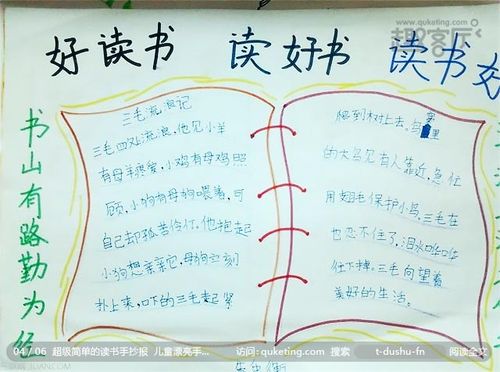 www.quketing.com
趣客厅
好读书 读好书 读书好
书山有路勤为径
三毛流浪记
三毛四处流浪,他见小羊
有母羊疼爱,小鸡有母鸡照
顾,小狗有母狗喂着,可
自己却孤苦伶仃.他抱起
小狗想亲亲它,母狗立刻
扑上来,吓的三毛赶紧
爬到树上去。鸟窝里
的大鸟见有人靠近,急忙
用翅膀保护小鸟,三毛在
也忍不住了,泪水哗哗
往下掉。三毛向望着
美好的生活。
04 / 06 超级简单的读书手抄报 儿童漂亮手...
访问:quketing.com 搜索 t-dushu-fn 阅读全文